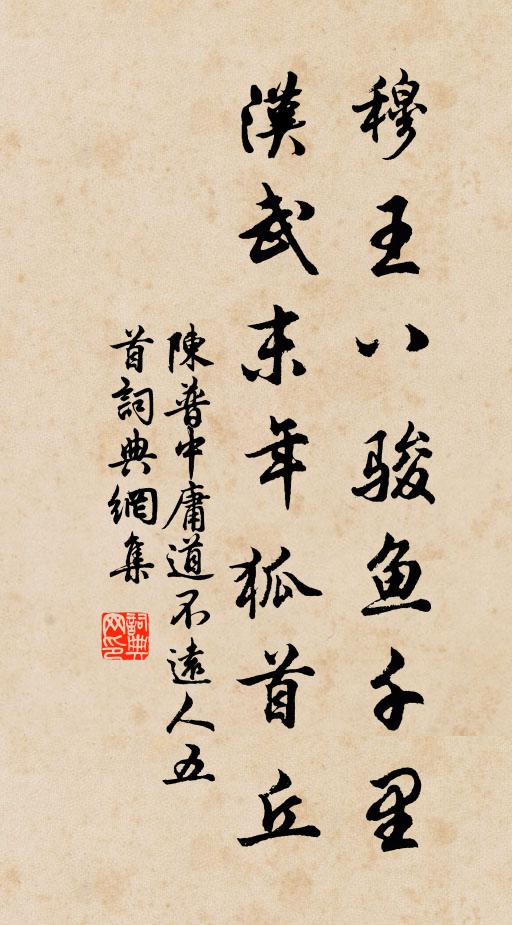 穆王八骏鱼千里
漢武末年狐首丘
陳普中庸道不遠人五
首詞典網集
詞典网印